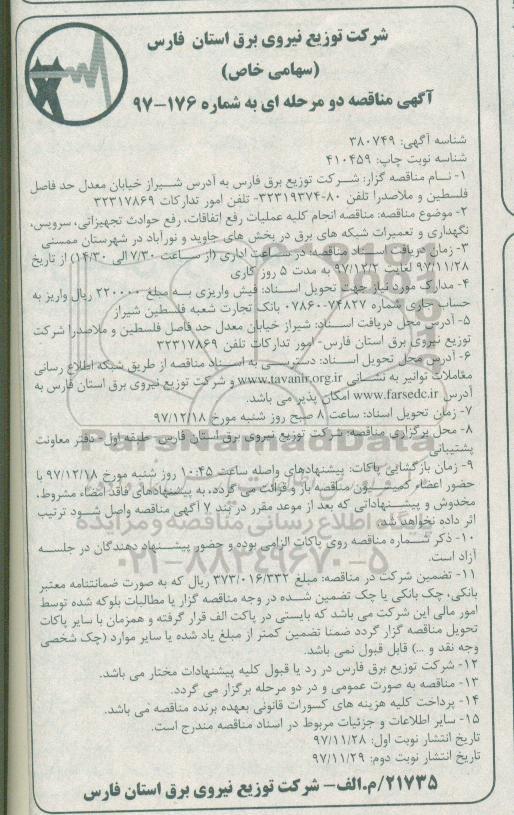 شرکت توزیع نیروی برق استان فارس
(سهامی خاص)
آگهی مناقصه دو مرحله ای به شماره ۱۷۶-۹۷
شناسه آگهی: ۳۸۰۷۴۹
شناسه نوبت چاپ: ۴۱۰۴۵۹
۱- نام مناقصه گزار: شرکت توزیع برق فارس به آدرس شیراز خیابان معدل حد فاصل
فلسطین و ملاصدرا تلفن ۸۰-۳۲۳۱۹۳۷۴- تلفن امور تدارکات ۳۲۳۱۷۸۶۹
۲- موضوع مناقصه: مناقصه انجام کلیه عملیات رفع اتفاقات، رفع حوادث تجهیزاتی، سرویس،
نگهداری و تعمیرات شبکه های برق در بخش های جاوید و نورآباد در شهرستان ممسنی
۳- زمان دریافت اسناد مناقصه: در ساعت اداری (از ساعت ۷/۳۰ الی ۱۴/۳۰) از تاریخ
۹۷/۱۱/۲۸ لغایت ۹۷/۱۲/۲ به مدت ۵ روز کاری
۴- مدارک مورد نیاز جهت تحویل اسناد: فیش واریزی به مبلغ ۲۲۰۰۰۰ ریال واریز به
حساب جاری شماره ۷۴۸۲۷-۰۷۸۶۰ بانک تجارت شعبه فلسطین شیراز
۵- آدرس محل دریافت اسناد: شیراز خیابان معدل حد فاصل فلسطین و ملاصدرا شرکت
توزیع نیروی برق استان فارس- امور تدارکات تلفن ۳۲۳۱۷۸۶۹
۶- آدرس محل تحویل اسناد: دسترسی به اسناد مناقصه از طریق شبکه اطلاع رسانی
معاملات توانیر به نشانی www.tavanir.org.ir و شرکت توزیع نیروی برق استان فارس به
آدرس www.farsedc.ir امکان پذیر می باشد.
۷- زمان تحویل اسناد: ساعت ۸ صبح روز شنبه مورخ ۹۷/۱۲/۱۸
۸- محل برگزاری مناقصه: شرکت توزیع نیروی برق استان فارس- طبقه اول- دفتر معاونت
پشتیبانی
۹- زمان بازگشائی پاکات: پیشنهادهای واصله ساعت ۱۰:۴۵ روز شنبه مورخ ۹۷/۱۲/۱۸ با
حضور اعضاء کمیسیون مناقصه باز و قرائت می گردد، به پیشنهادهای فاقد امضاء مشروط،
مخدوش و پیشنهاداتی که بعد از موعد مقرر در بند ۷ آگهی مناقصه واصل شود ترتیب
اثر داده نخواهد شد.
۱۰- ذکر شماره مناقصه روی پاکات الزامی بوده و حضور پیشنهاد دهندگان در جلسه
آزاد است.
۱۱- تضمین شرکت در مناقصه: مبلغ ۳۷۳/۰۱۶/۳۳۲ ریال که به صورت ضمانتنامه معتبر
بانکی، چک بانکی یا چک تضمین شده در وجه مناقصه گزار یا مطالبات بلوکه شده توسط
امور مالی این شرکت می باشد که بایستی در پاکت الف قرار گرفته و همزمان با سایر پاکات
تحویل مناقصه گزار گردد ضمنا تضمین کمتر از مبلغ یاد شده یا سایر موارد (چک شخصی
وجه نقد و ...) قابل قبول نمی باشد.
۱۲- شرکت توزیع برق فارس در رد یا قبول کلیه پیشنهادات مختار می باشد.
۱۳- مناقصه به صورت عمومی و در دو مرحله برگزار می گردد.
۱۴- پرداخت کلیه هزینه های کسورات قانونی بعهده برنده مناقصه می باشد.
۱۵- سایر اطلاعات و جزئیات مربوط در اسناد مناقصه مندرج است.
تاریخ انتشار نوبت اول: ۹۷/۱۱/۲۸
تاریخ انتشار نوبت دوم: ۹۷/۱۱/۲۹
۲۱۷۳۵/م.الف- شرکت توزیع نیروی برق استان فارس
ParsNamadData
پایگاه اطلاع رسانی مناقصه و مزایده
۰۲۱-۸۸۳۴۹۶۷۰-۵